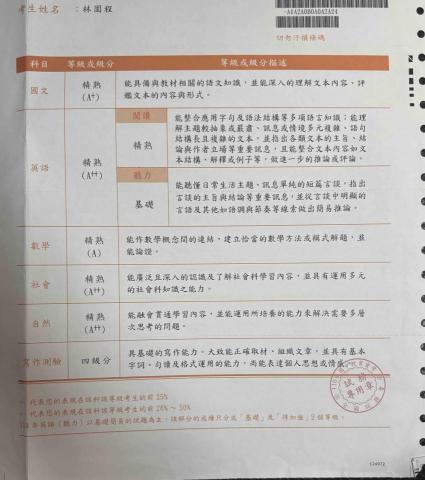 考生姓名 ：林圓程
-A1A2A0B0A0A2A24
切勿汙損條碼
科目 等級或級分 等級或級分描述
國文 精熟 (A+) 能具備與教材相關的語文知識，並能深入的理解文本內容、評
鑑文本的內容與形式。
英語 精熟 (A++)
閱讀
精熟
能整合應用字句及語法結構等多項語言知識；能理
解主題較抽象或嚴肅、訊息或情境多元複雜、語句
結構長且複雜的文本，並指出各類文本的主旨、結
論與作者立場等重要訊息，且能整合文本內容如文
本結構、解釋或例子等，做進一步的推論或評論。
聽力
基礎
能聽懂日常生活主題、訊息單純的短篇言談，指出
言談的主旨與結論等重要訊息，並從言談中明顯的
言語及其他如語調與節奏等線索做出簡易推論。
數學 精熟 (A) 能作數學概念間的連結，建立恰當的數學方法或模式解題，並
能論證。
社會 精熟 (A++) 能廣泛且深入的認識及了解社會科學習內容，並具有運用多元
的社會科知識之能力。
自然 精熟 (A++) 能融會貫通學習內容，並能運用所培養的能力來解決需要多層
次思考的問題。
寫作測驗 四級分 具基礎的寫作能力。大致能正確取材、組織文章，並具有基本
字詞、句讀及格式運用的能力，尚能表達個人思想或情感
試務
專用章
代表您的表現在該科該等級考生的前25%
代表您的表現在該科該等級考生的前26%～50%
年英語（聽力）以基礎簡易的試題為主，該部分的成績只分成「基礎」及「待加強」2個等級。